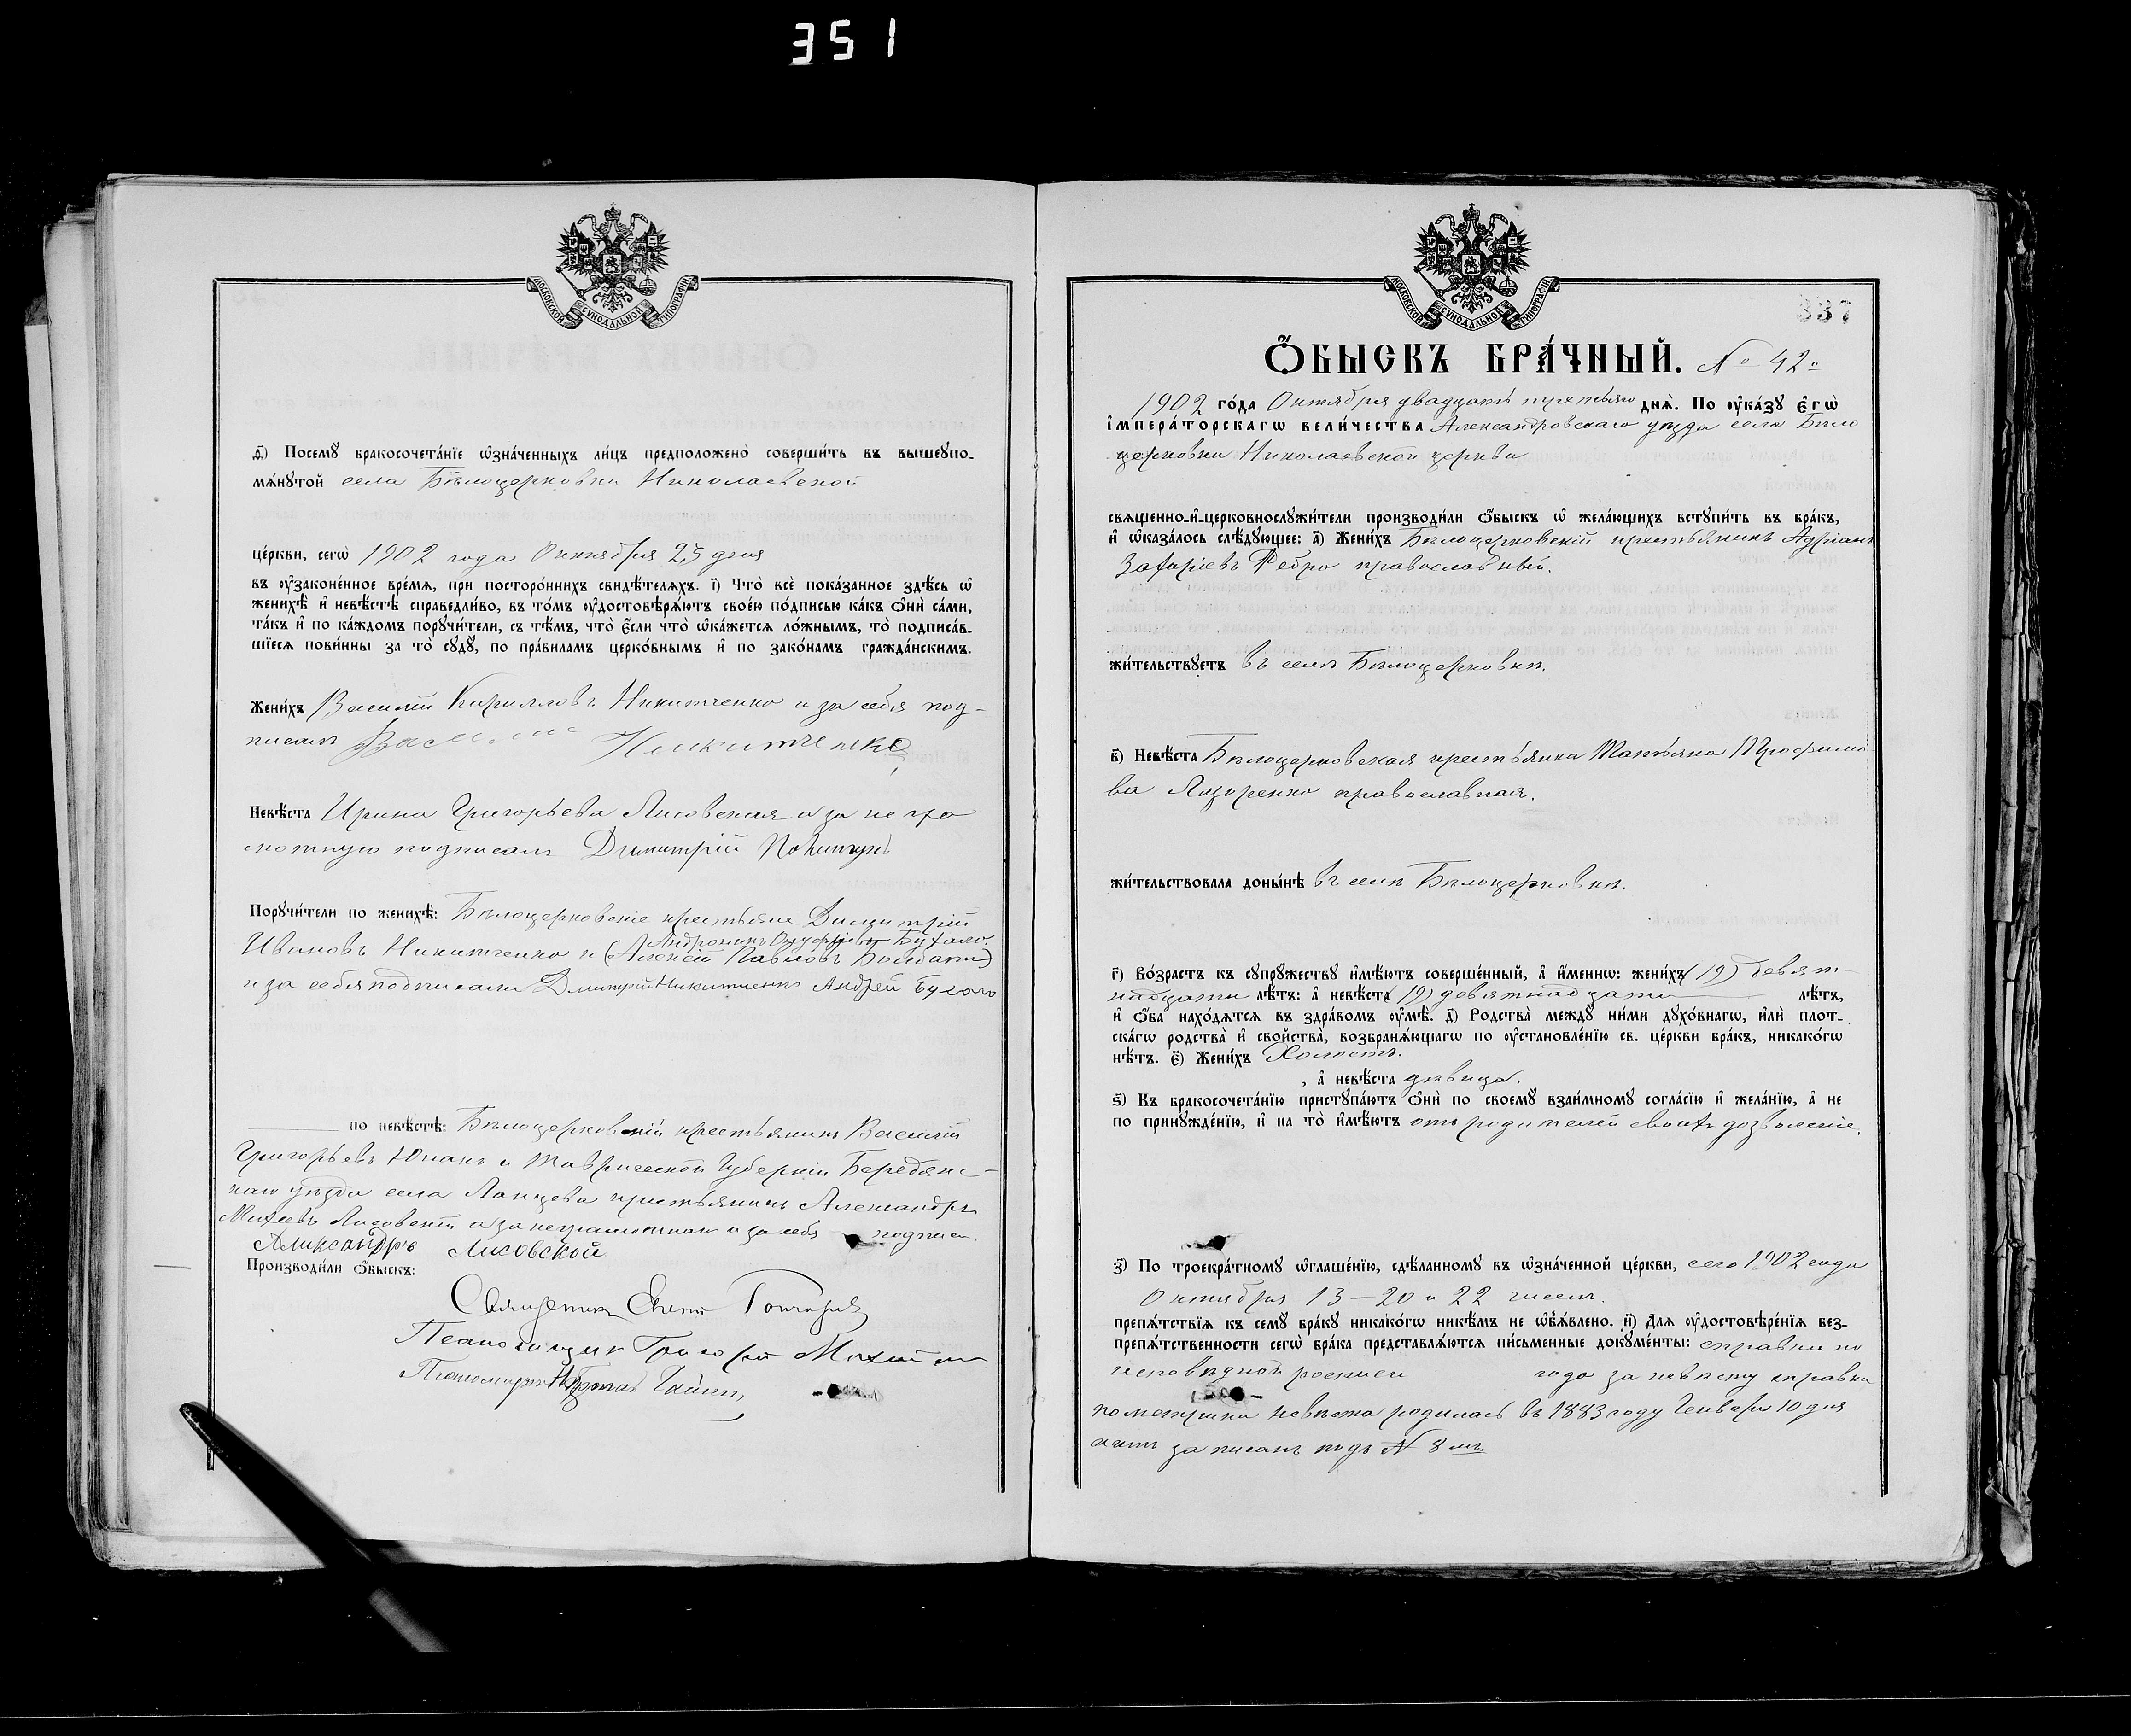 351
МОСКОВСКОЙ СѴНОДАЛЬНОЙ ТИПОГРАФІИ
Ѳ҃) Посемꙋ̀ бракосочета́нїе ѡ҆зна́ченныхъ ли́цъ предположено̀ соверши́ть въ вышеꙋпо-
мѧ́нꙋтой села Бѣлоцерковки Николаевской
це́ркви, сегѡ̀ 1902 года Октября 25 дня
въ ᲂу҆зако́ненное вре́мѧ, при посторо́ннихъ свидѣ́телѧхъ. і҃) Что̀ всѐ пока́занное здѣ́сь ѡ҆
женихѣ̀ и҆ невѣ́стѣ справедли́во, въ то́мъ ᲂу҆достовѣрѧ́ютъ свое́ю по́дписью ка́къ ѻ҆нѝ са́ми,
та́къ и҆ по ка́ждомъ порꙋчи́тели, съ тѣ́мъ, что̀ є҆́сли что̀ ѡ҆ка́жетсѧ ло́жнымъ, то̀ подписа́в-
шїесѧ пови́нны за то̀ сꙋдꙋ̀, по пра́виламъ церко́внымъ и҆ по зако́намъ гражда́нскимъ.
Жени́хъ Василій Кирилловъ Никитченко и за себя под-
писалъ Василий Никитченко
Невѣ́ста Ирина Григорьева Лисовская а за не гра
мотную подписалъ Димитрій
Порꙋчи́тели по женихѣ̀: Бѣлоцерковскіе крестьяне Димитрій
Андроникъ Онуфріевъ Бухало.
Ивановъ Никитченко и (Алексѣй Павловъ)
и за себя подписали Дмитрій Никитченко Андрей Бухало
по невѣ́стѣ: Бѣлоцерковскій крестьянинъ Василій
Григорьевъ Юнакъ и Таврической Губерніи Бердянс-
каго уѣзда села крестьянинъ Александръ
Михеевъ Лисовскій а за неграмотнаго и за себя подписа.
Александръ Лисовской
Производи́ли ѻ҆́быскъ:
Священникъ Гончаровъ
Псаломщикъ Григорій
Пономарь
МОСКОВСКОЙ СѴНОДАЛЬНОЙ ТИПОГРАФІИ
337
Ѻ҆́БЫСКЪ БРА́ЧНЫЙ. № 42й
1902 го́да Октября двадцать третьяго днѧ̀. По ᲂу҆ка́зꙋ є҆гѡ̀
і҆мпера́торскагѡ вели́чества Александровскаго уѣзда села Бѣло
церковки Николаевской церкви
свѧще́нно-и҆-церковнослꙋжи́тели производи́ли ѻ҆́быскъ ѡ҆ жела́ющихъ встꙋпи́ть въ бра́къ,
и҆ ѡ҆каза́лось слѣ́дꙋющее: а҃) Жени́хъ Бѣлоцерковскій крестьянинъ Адріанъ
Захаріевъ Ребро православный.
жи́тельствꙋетъ въ селѣ Бѣлоцерковкѣ.
в҃) Невѣ́ста Бѣлоцерковская крестьянка Татьяна Трофимо
ва Лазоренко православная.
жи́тельствовала доны́нѣ въ селѣ Бѣлоцерковкѣ.
г҃) Во́зрастъ къ сꙋпрꙋ́жествꙋ и҆мѣ́ютъ соверше́нный, а҆ и҆́меннѡ: жени́хъ (19) девят-
надцати лѣ́тъ: а҆ невѣ́ста (19) девятнадцати лѣ́тъ,
и҆ ѻ҆́ба нахо́дѧтсѧ въ здра́вомъ ᲂу҆мѣ̀. д҃) Родства̀ междꙋ ни́ми дꙋхо́внагѡ, и҆лѝ плот-
ска́гѡ родства̀ и҆ свойства̀, возбранѧ́ющагѡ по ᲂу҆становле́нїю св. це́ркви бра́къ, никако́гѡ
нѣ́тъ. є҃) Жени́хъ Холостъ.
, а҆ невѣ́ста дѣвица.
ѕ҃) Къ бракосочета́нїю пристꙋпа́ютъ ѻ҆нѝ по своемꙋ̀ взаи́мномꙋ согла́сїю и҆ жела́нїю, а҆ не
по принꙋжде́нїю, и҆ на то̀ и҆мѣ́ютъ отъ родителей своихъ дозволеніе.
з҃) По троекра́тномꙋ ѡ҆глаше́нїю, сдѣ́ланномꙋ въ ѡ҆зна́ченной це́ркви, сего 1902 года
Октября 13 — 20 и 22 чиселъ.
препѧ́тствїѧ къ семꙋ̀ бра́кꙋ никако́гѡ никѣ́мъ не ѡ҆б̾ѧ́влено. и҃) Длѧ ᲂу҆достовѣре́нїѧ без-
препѧ́тственности сегѡ̀ бра́ка представлѧ́ютсѧ пи́сьменные докꙋме́нты: справки по
исповѣдной росписи года за невѣсту справка
по метрики невѣста родилась въ 1883 году Генваря 10 дня
актъ записанъ подъ № 8 мъ.